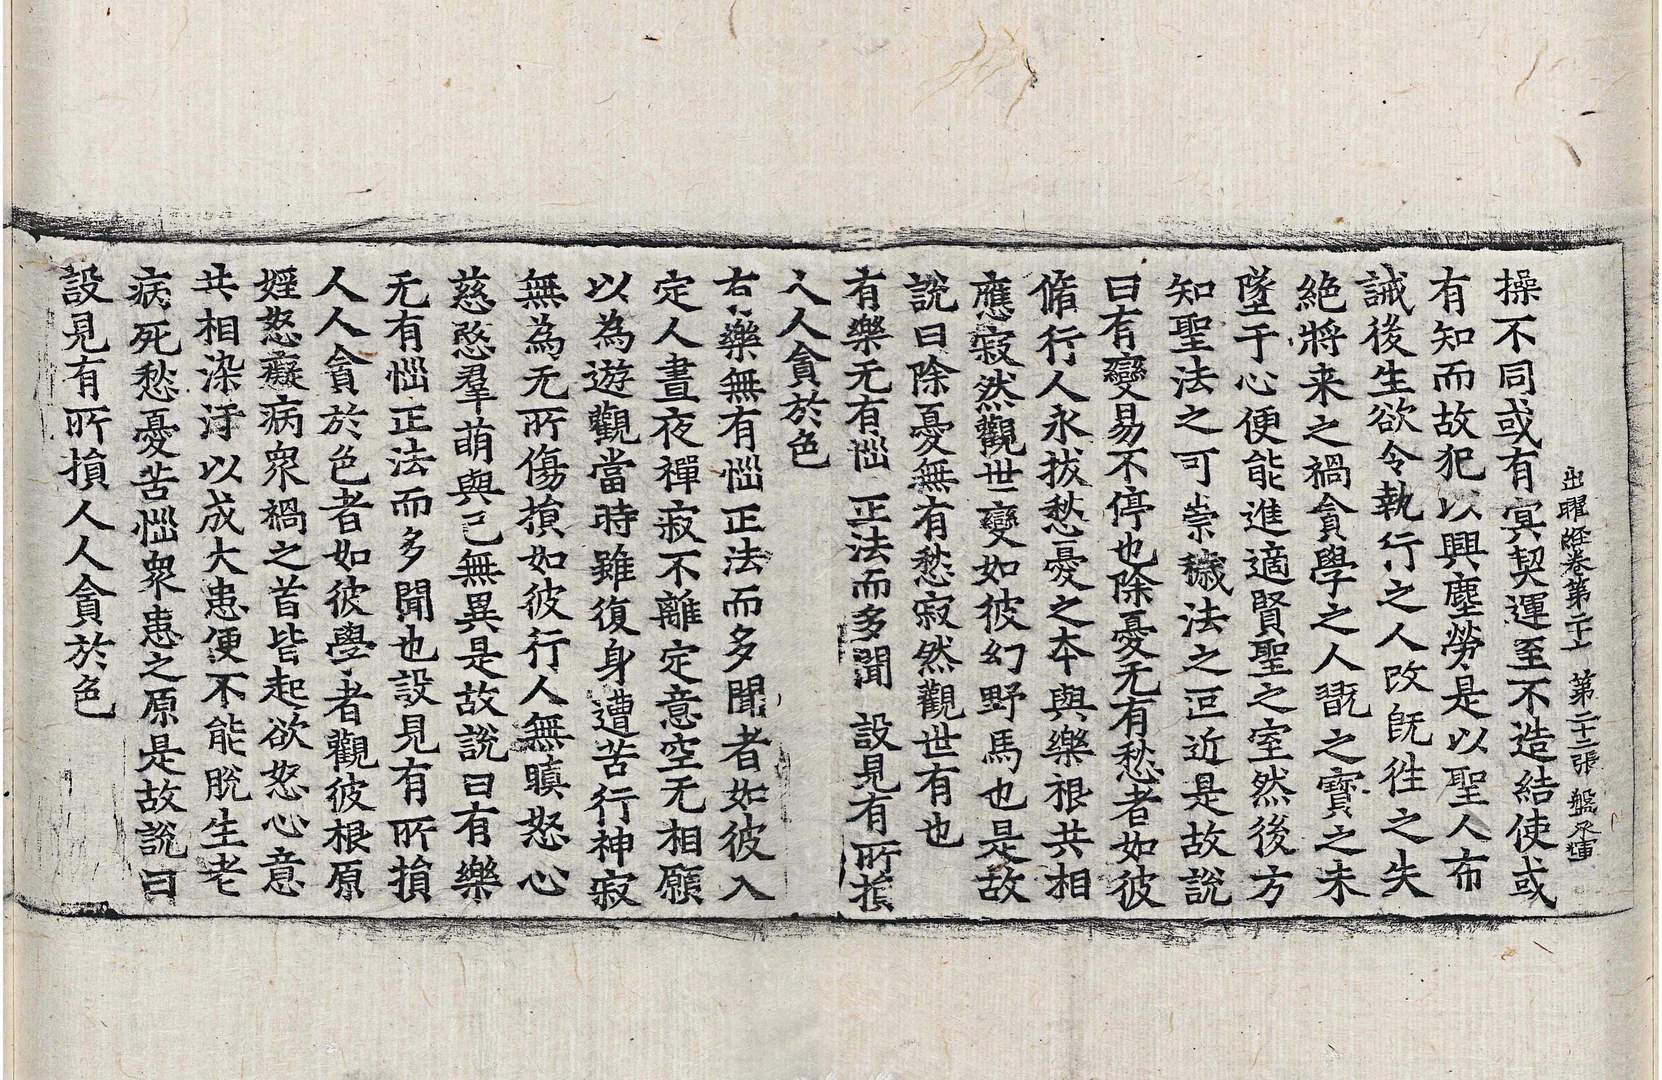 出曜經卷第二十一 第二十二張 盤 輝
操不同或有㝠契運至不造結使或
有知而故犯以興塵勞是以聖人布
誡後生欲令執行之人改旣徃之失
絶將来之禍貪學之人翫之寶之未
墜于心便能進適賢聖之室然後方
知聖法之可崇穢法之叵近是故說
曰有變易不停也除憂无有愁者如彼
脩行人永拔愁憂之夲與樂根共相
應寂然觀世變如彼幻野馬也是故
說曰除憂無有愁寂然觀世有也
有樂无有惱 正法而多聞 設見有所損
人人貪於色
右樂無有惱正法而多聞者如彼入
定人晝夜禪寂不離定意空无相願
以為遊觀當時雖復身遭苦行神寂
無為无所傷損如彼行人無瞋怒心
慈愍羣萌與己無異是故說曰有樂
无有惱正法而多聞也設見有所損
人人貪於色者如彼學者觀彼根原
婬怒癡病衆禍之首皆起欲怒心意
共相染汙以成大患便不能脫生老
病死愁憂苦惱衆患之原是故說曰
設見有所損人人貪於色